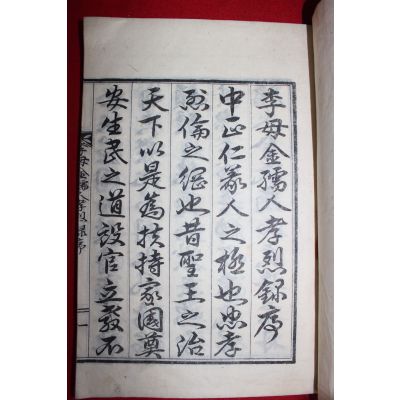 李母金孺人孝烈錄序
中正仁義人之極也忠孝
烈倫之綱也昔聖王之治
天下以是爲扶持家國奠
安生民之道設官立敎不
李母金孺人孝烈錄序 一